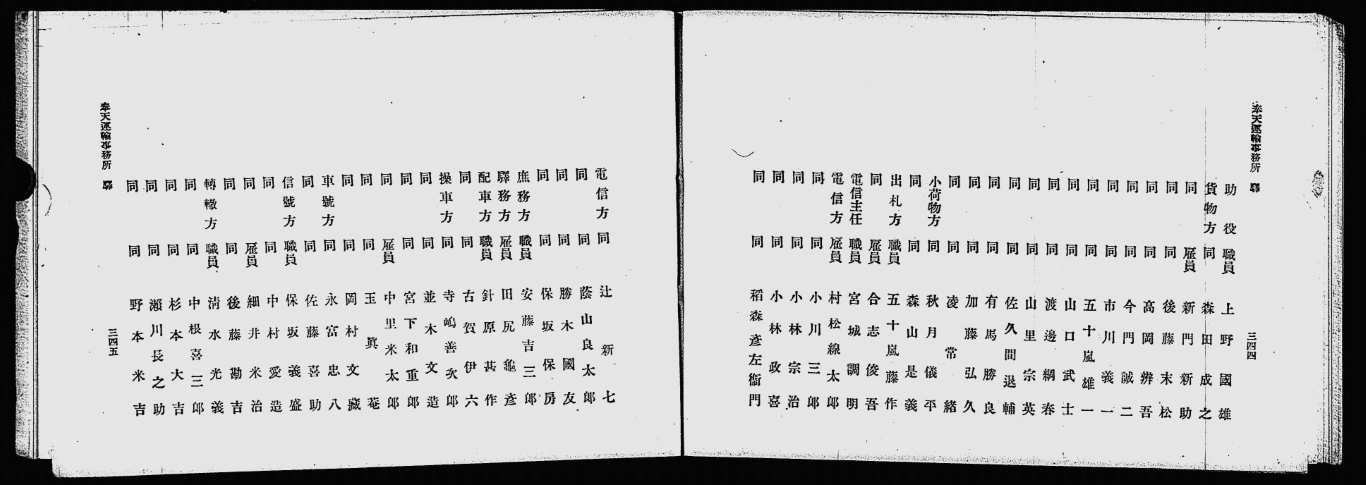 奉天運輸事務所 驛
三四四
助役 職員 上野國雄
貨物方 同 森田成之
同 雇員 新門新助
同 同 後藤末松
同 同 高岡辨吾
同 同 今門誠二
同 同 市川義一
同 同 五十嵐雄一
同 同 山口武士
同 同 渡邊綱春
同 同 山里宗英
同 同 佐久間退輔
同 同 有馬勝良
同 同 加藤弘久
同 同 凌常緒
小荷物方 同 秋月儀平
同 同 森山是義
出札方 職員 五十嵐藤作
同 雇員 合志俊吾
電信主任 職員 宮城調明
電信方 雇員 村松線太郎
同 同 小川三郎
同 同 小林宗治
同 同 小林政喜
同 同 稻森彦左衞門
電信方 同 辻新七
同 同 蔭山良太郎
同 同 勝木國友
同 同 保坂保房
庶務方 職員 安藤吉三郎
驛務方 雇員 田尻龜彦
配車方 職員 針原甚作
同 同 古賀伊六
操車方 同 寺嶋善次郎
同 同 並木文造
同 同 宮下和重郎
同 雇員 中里米太郎
同 同 玉眞菴
同 同 岡村文藏
車號方 同 永富忠八
同 同 佐藤喜助
信號方 職員 保坂義盛
同 同 中村愛造
同 雇員 細井米治
同 同 後藤勘吉
轉轍方 職員 淸水光義
同 同 中根喜三郎
同 同 杉本大吉
同 同 瀬川長之助
同 同 野本米吉
奉天運輸事務所 驛
三四五